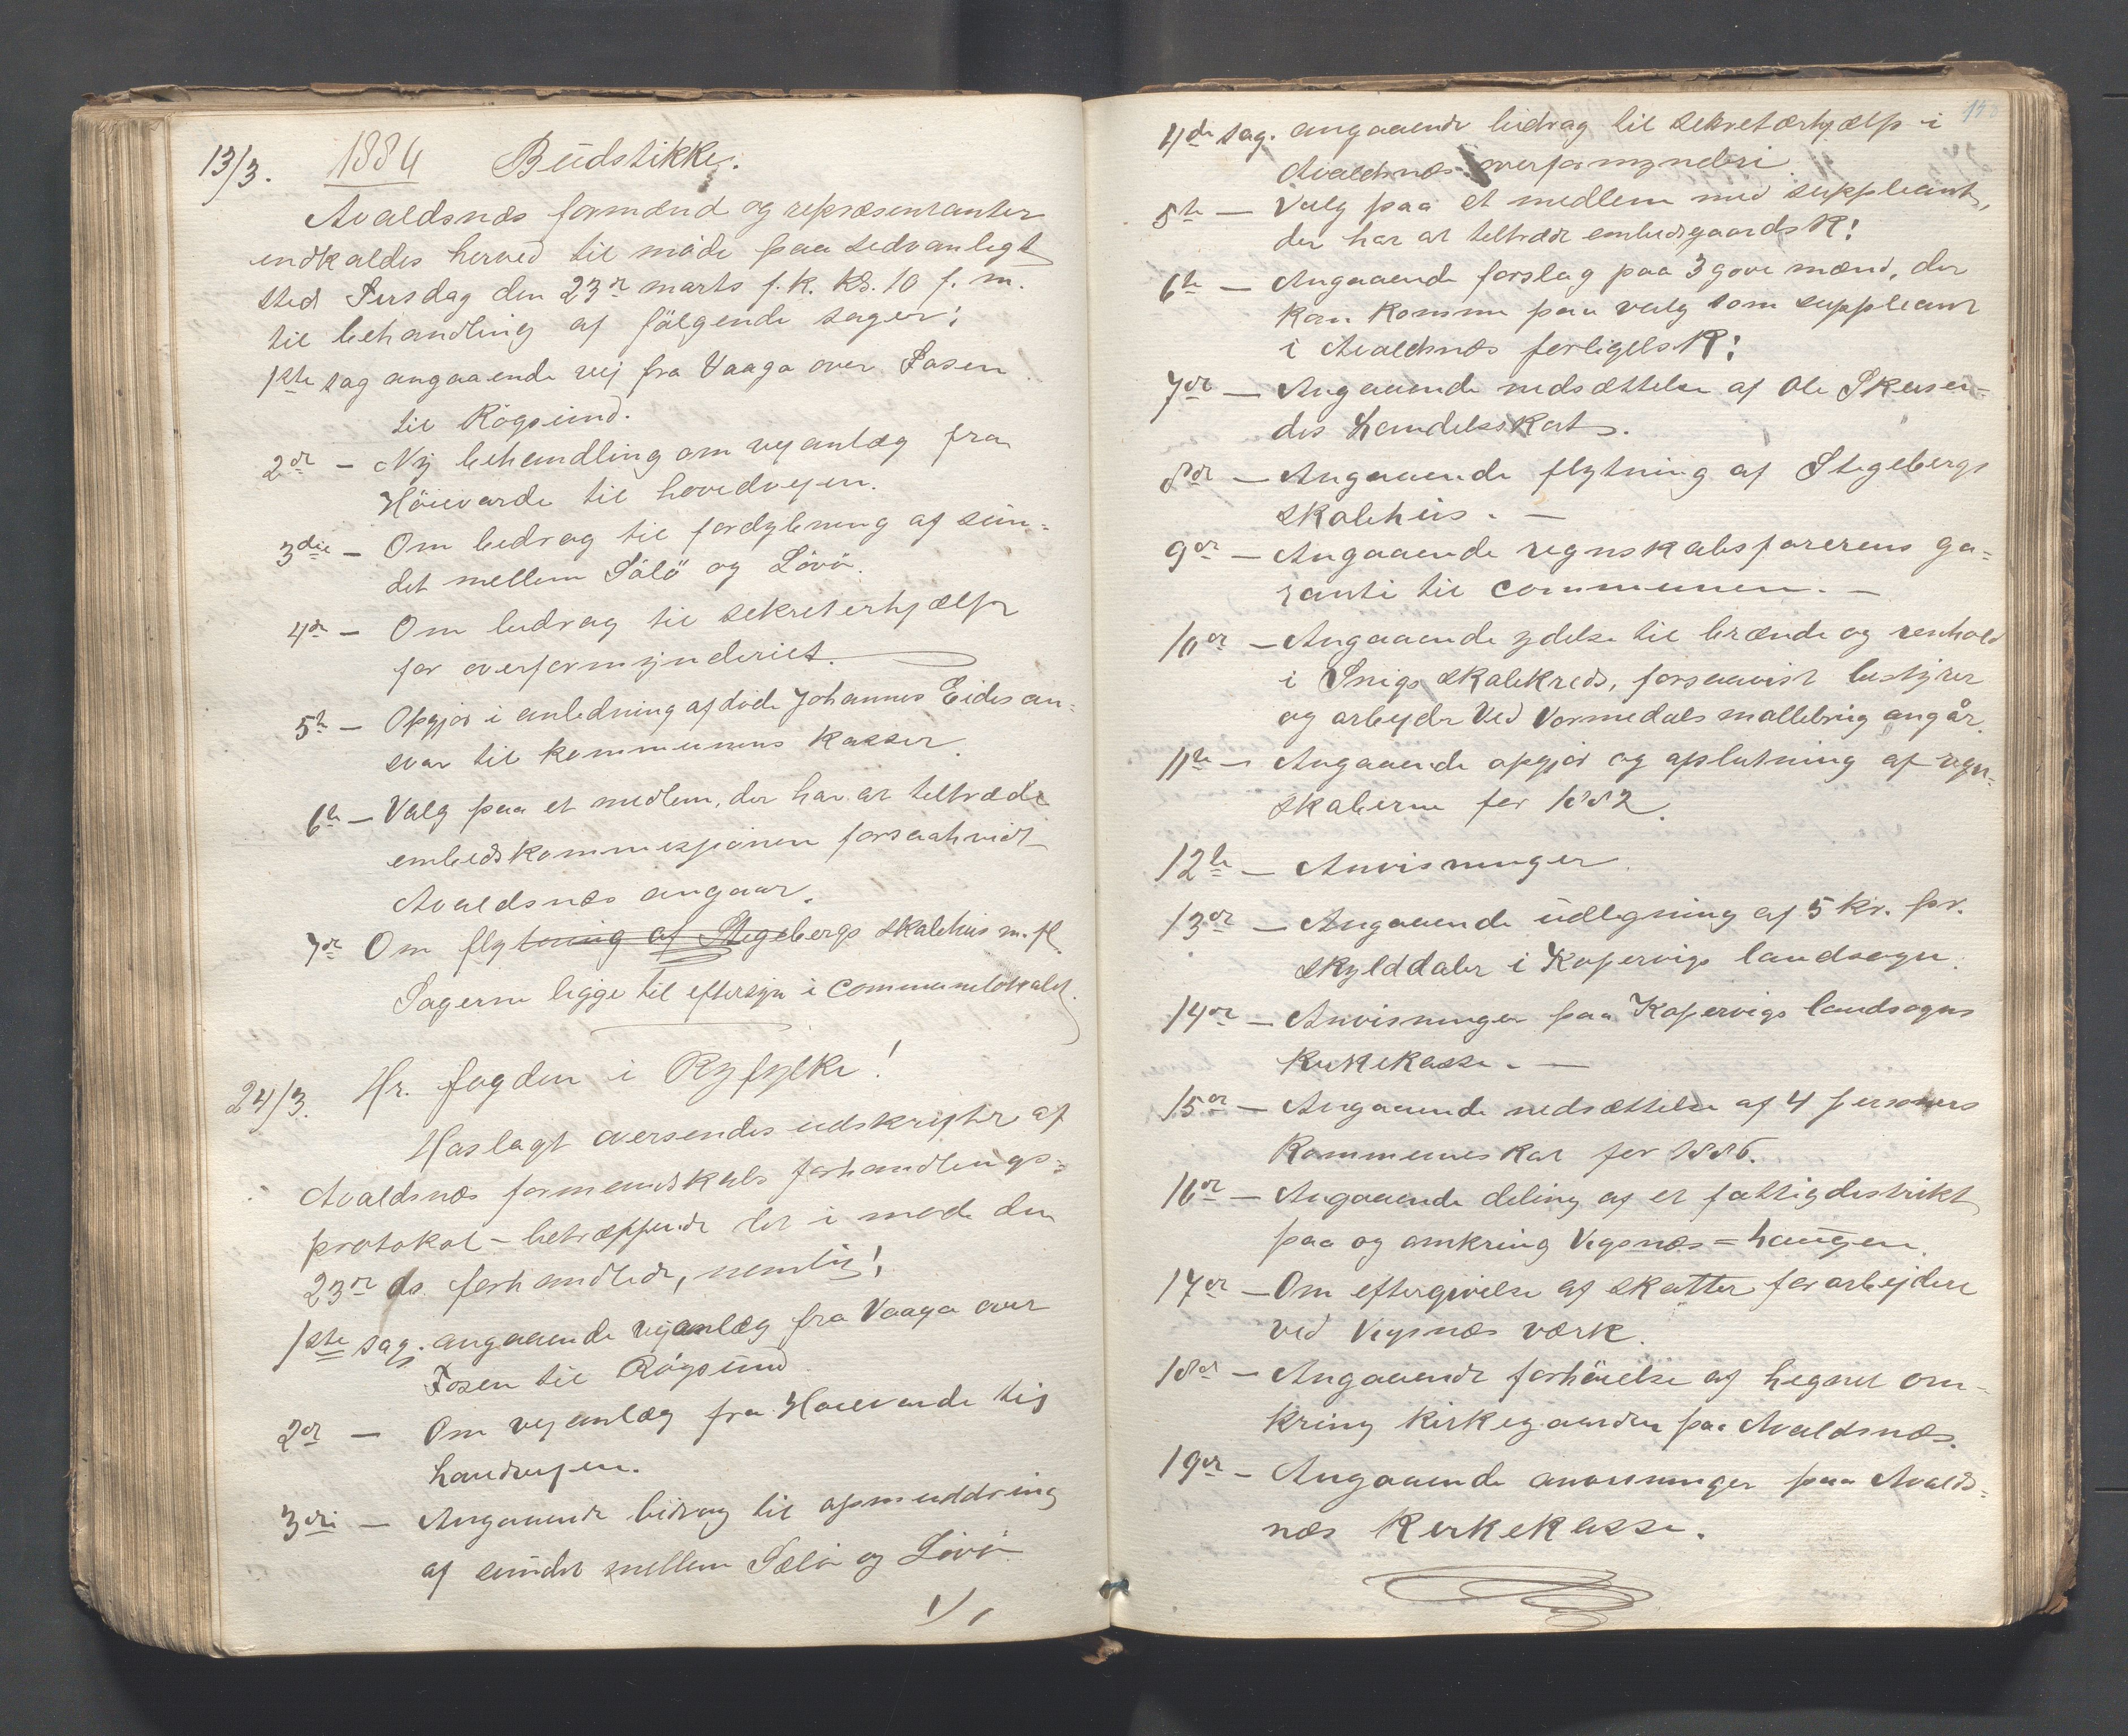 13/3. 1886 Budstikke.
Avaldsnæs formænd og repræsentanter
indkaldes herved til möde paa sedvanligt
sted Tirsdag den 23de marts f. k. Kl. 10 f. m.
til behandling af fölgende sager:
1ste sag angaaende vej fra Vaaga over Fosen
til Rögsund.
2de — Ny behandling om vejanlæg fra
Höievarde til hovedvejen.
3die — Om bidrag til fordybning af sun-
det mellem Sälö og Lövö.
4de — Om bidrag til sekreterhjælp
for overformynderiet.
5te — Opgjör i anledning af döde Johannes Eides an-
svar til kommunens kasser.
6te — Valg paa et medlem, der har at tiltræde
embedskommissjonen forsaahvidt
Avaldsnæs angaar.
7de Om flytning af Stegebergs skolehus m. fl.
Sagerne ligge til eftersyn i communelokalet.
24/3. Hr. fogden i Ryfylke!
Hoslagt oversendes udskrifter af
Avaldsnæs formandskabs forhandlings-
protokol – betræffende det i möde den
23de ds. forhandlede, nemlig!
1ste sag. angaaende vejanlæg fra Vaaga over
Fosen til Rögsund.
2de — Om vejanlæg fra Höievarde til
Landvejen.
3die — Angaaende bidrag til opmuddring
af sundet mellem Sælö og Lövö
4de sag. angaaende bidrag til sekretærhjælp i
Avaldsnæs overformynderi
5te — Valg paa et medlem med suppleant,
der har at tiltræde embedsgaards K!
6te — Angaaende forslag paa 3 gode mænd, der
kan komme paa valg som suppleant
i Avaldsnæs forligels K!
7de — Angaaende nedsættelse af Ole Skeisen-
des Handelsskat.
8de — Angaaende flytning af Stegebergs
skolehus. —
9de — Angaaende regnskabsförerens ga-
ranti til communen. —
10de — Angaaende ydelse til brænde og renhold
i Snigs skolekreds, forsaavist bestyrer
og arbejder ved Vormedals mallebrug angår.
11te — Angaaende opgjör og afslutning af regn-
skaberne for 1882.
12te — Anvisninger.
13de — Angaaende udligning af 5 kr. pr.
skylddaler i Kopervigs landsogn.
14de — Anvisninger paa Kopervigs landsogns
Kirkekasse. —
15de — Angaaende nedsættelse af 4 personers
Kommuneskat for 1886.
16de — Angaaende deling af et fattigdistrikt
paa og omkring Vigsnæs = haugen.
17de — Om eftergivelse af skatter for arbejdere
ved Vigsnæs værk.
18de — Angaaende forhöielse af hegnet om-
kring Kirkegaarden paa Avaldsnæs.
19de — Angaaende anvisninger paa Avalds-
næs Kirkekasse.